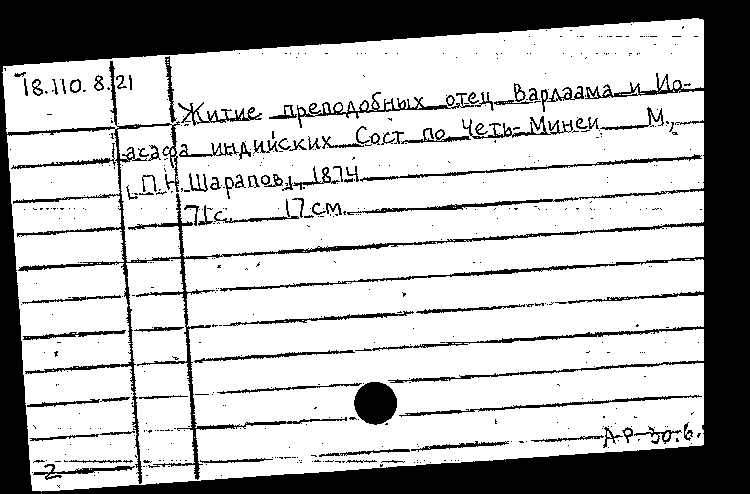 18.110.8.21
Житие преподобных отец Варлаама и Ио-
асафа индийских Сост по Четь-Минеи М.,
П.Н. Шарапов, 1874
71 с. 17 см.
АР 30.6.
2